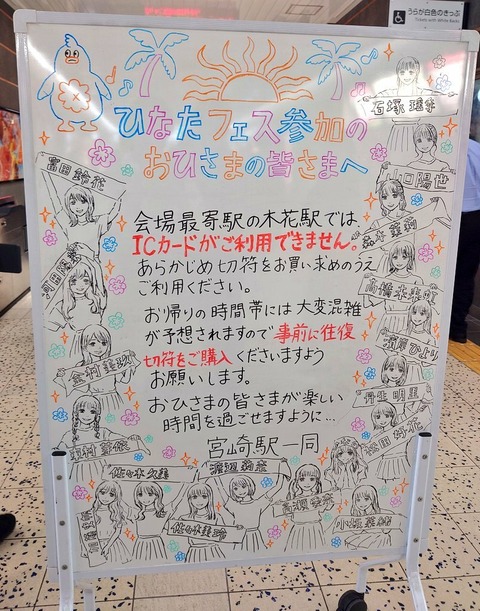 うらが白色のきっぷ
Tickets with White Backs
ひなたフェス参加の
おひさまの皆さまへ
会場最寄駅の木花駅では
ICカードがご利用できません。
あらかじめ切符をお買い求めのうえ
ご利用ください。
お帰りの時間帯には大変混雑
が予想されますので事前に往復
切符をご購入くださいますよう
お願いします。
おひさまの皆さまが楽しい
時間を過ごせますように…
宮崎駅一同
富田鈴花
河田陽菜
金村美玖
東村芽依
加藤史帆
佐々木久美
佐々木美玲
渡辺莉奈
髙瀬愛奈
小坂菜緒
松田好花
丹生明里
濱岸ひより
髙橋未来虹
森本茉莉
山口陽世
石塚瑶季